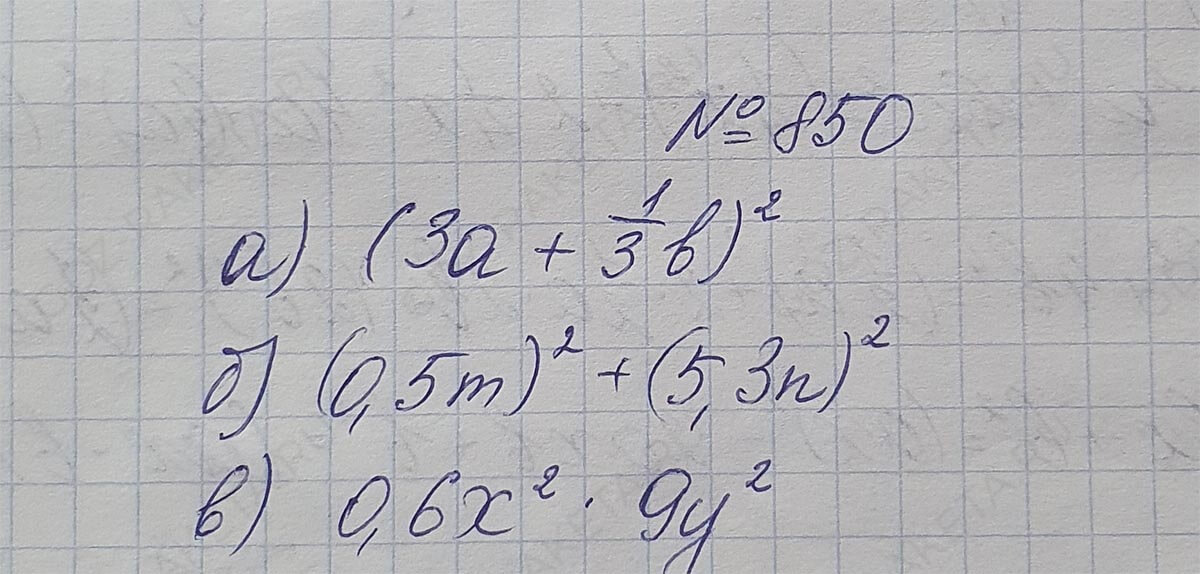 № 850
а) (3a + 1/3 b)²
б) (0,5m)² + (5,3n)²
в) 0,6x² · 9y²